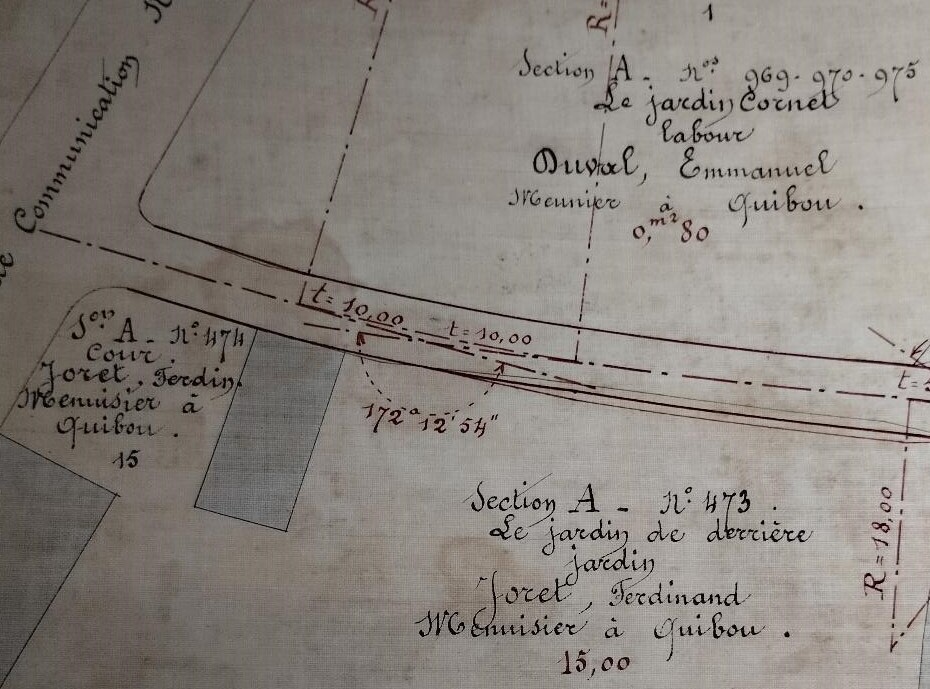 1
Section A - Nos 969-970-975
Le jardin Cornet
labour
Duval, Emmanuel
Meunier à Quibou.
0,m²80
Communication
R=
t=10,00
t=10,00
Son A - No 474
Cour.
Joret, Ferdin.
Menuisier à
Quibou.
15
172° 12' 54"
t=
R=18,00
Section A - No 473.
Le jardin de derrière
jardin
Joret, Ferdinand
Menuisier à Quibou.
15,00